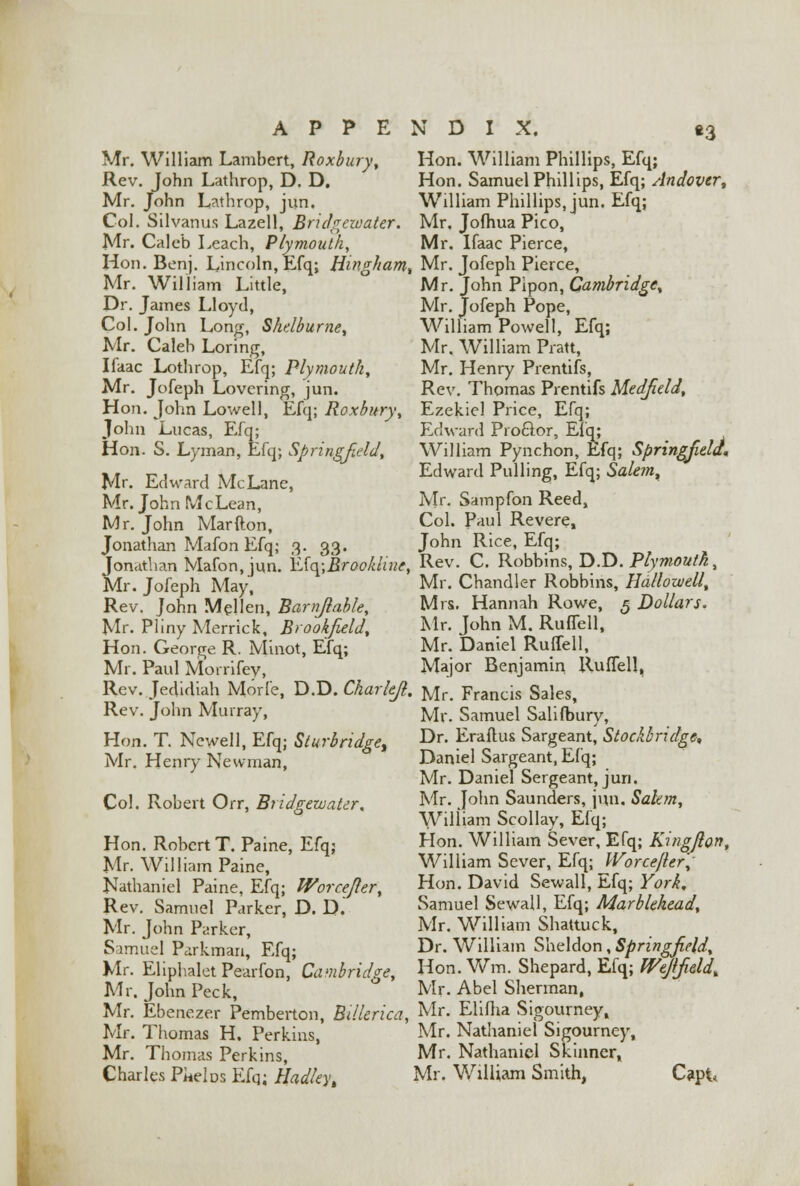 APPENDIX. 23
Mr. William Lambert, Roxbury,
Rev. John Lathrop, D. D.
Mr. John Lathrop, jun.
Col. Silvanus Lazell, Bridgewater.
Mr. Caleb Leach, Plymouth,
Hon. Benj. Lincoln, Eſq; Hingham,
Mr. William Little,
Dr. James Lloyd,
Col. John Long, Shelburne,
Mr. Caleb Loring,
Iſaac Lothrop, Eſq; Plymouth,
Mr. Joſeph Lovering, jun.
Hon. John Lowell, Eſq; Roxbury,
John Lucas, Eſq;
Hon. S. Lyman, Eſq; Springfield,
Mr. Edward McLane,
Mr. John McLean,
Mr. John Marſton,
Jonathan Maſon Eſq; 3. 33.
Jonathan Maſon, jun. Eſq; Brookline,
Mr. Joſeph May,
Rev. John Mellen, Barnſtable,
Mr. Pliny Merrick, Brookfield,
Hon. George R. Minot, Eſq;
Mr. Paul Morriſey,
Rev. Jedidiah Morſe, D.D. Charleſt.
Rev. John Murray,
Hon. T. Newell, Eſq; Sturbridge,
Mr. Henry Newman,
Col. Robert Orr, Bridgewater.
Hon. Robert T. Paine, Eſq;
Mr. William Paine,
Nathaniel Paine, Eſq; Worceſter,
Rev. Samuel Parker, D. D.
Mr. John Parker,
Samuel Parkman, Eſq;
Mr. Eliphalet Pearſon, Cambridge,
Mr. John Peck,
Mr. Ebenezer Pemberton, Billerica,
Mr. Thomas H. Perkins,
Mr. Thomas Perkins,
Charles Phelps Eſq; Hadley,
Hon. William Phillips, Eſq;
Hon. Samuel Phillips, Eſq; Andover,
William Phillips, jun. Eſq;
Mr. Joſhua Pico,
Mr. Iſaac Pierce,
Mr. Joſeph Pierce,
Mr. John Pipon, Cambridge,
Mr. Joſeph Pope,
William Powell, Eſq;
Mr. William Pratt,
Mr. Henry Prentiſs,
Rev. Thomas Prentiſs Medfield,
Ezekiel Price, Eſq;
Edward Proctor, Eſq;
William Pynchon, Eſq; Springfield,
Edward Pulling, Eſq; Salem,
Mr. Sampſon Reed,
Col. Paul Revere,
John Rice, Eſq;
Rev. C. Robbins, D.D. Plymouth,
Mr. Chandler Robbins, Hallowell,
Mrs. Hannah Rowe, 5 Dollars.
Mr. John M. Ruſſell,
Mr. Daniel Ruſſell,
Major Benjamin Ruſſell,
Mr. Francis Sales,
Mr. Samuel Saliſbury,
Dr. Eraſtus Sargeant, Stockbridge,
Daniel Sargeant, Eſq;
Mr. Daniel Sergeant, jun.
Mr. John Saunders, jun. Salem,
William Scollay, Eſq;
Hon. William Sever, Eſq; Kingſton,
William Sever, Eſq; Worceſter,
Hon. David Sewall, Eſq; York,
Samuel Sewall, Eſq; Marblehead,
Mr. William Shattuck,
Dr. William Sheldon, Springfield,
Hon. Wm. Shepard, Eſq; Weſtfield,
Mr. Abel Sherman,
Mr. Eliſha Sigourney,
Mr. Nathaniel Sigourney,
Mr. Nathaniel Skinner,
Mr. William Smith,
Capt.